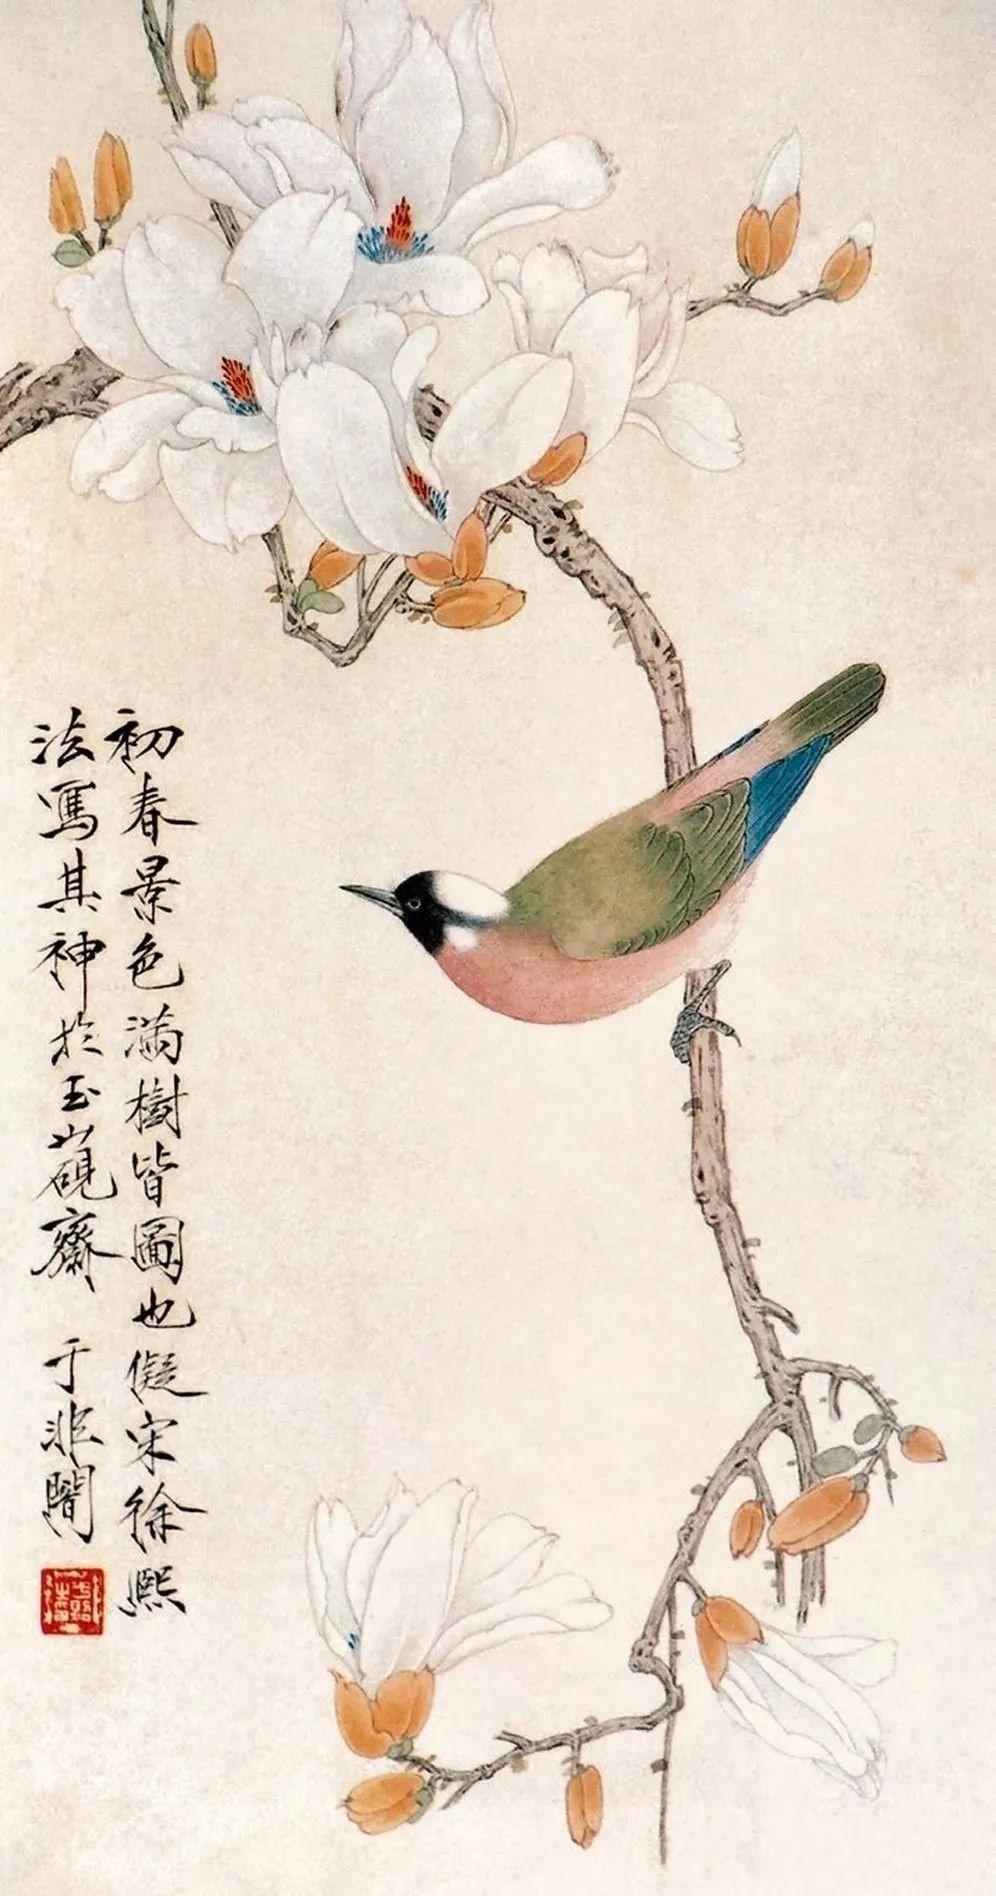 初春景色滿樹皆圖也儗宋徐熙
法寫其神於玉山硯齋　于非闇